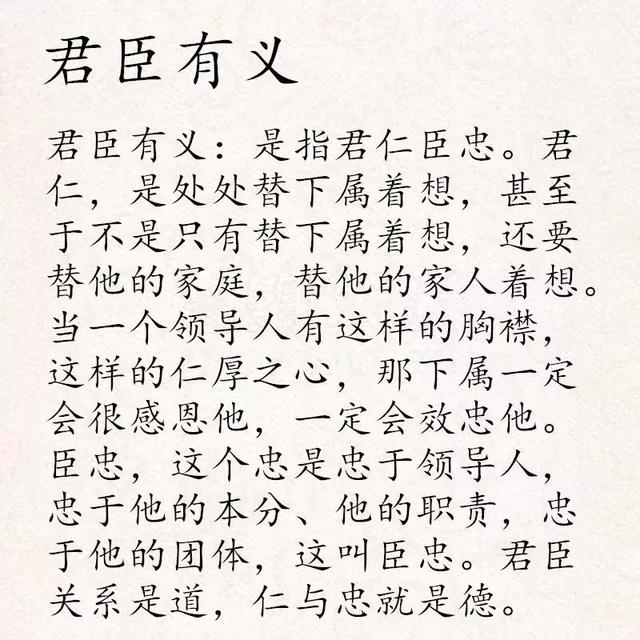 君臣有义
君臣有义：是指君仁臣忠。君
仁，是处处替下属着想，甚至
于不是只有替下属着想，还要
替他的家庭，替他的家人着想。
当一个领导人有这样的胸襟，
这样的仁厚之心，那下属一定
会很感恩他，一定会效忠他。
臣忠，这个忠是忠于领导人，
忠于他的本分、他的职责，忠
于他的团体，这叫臣忠。君臣
关系是道，仁与忠就是德。